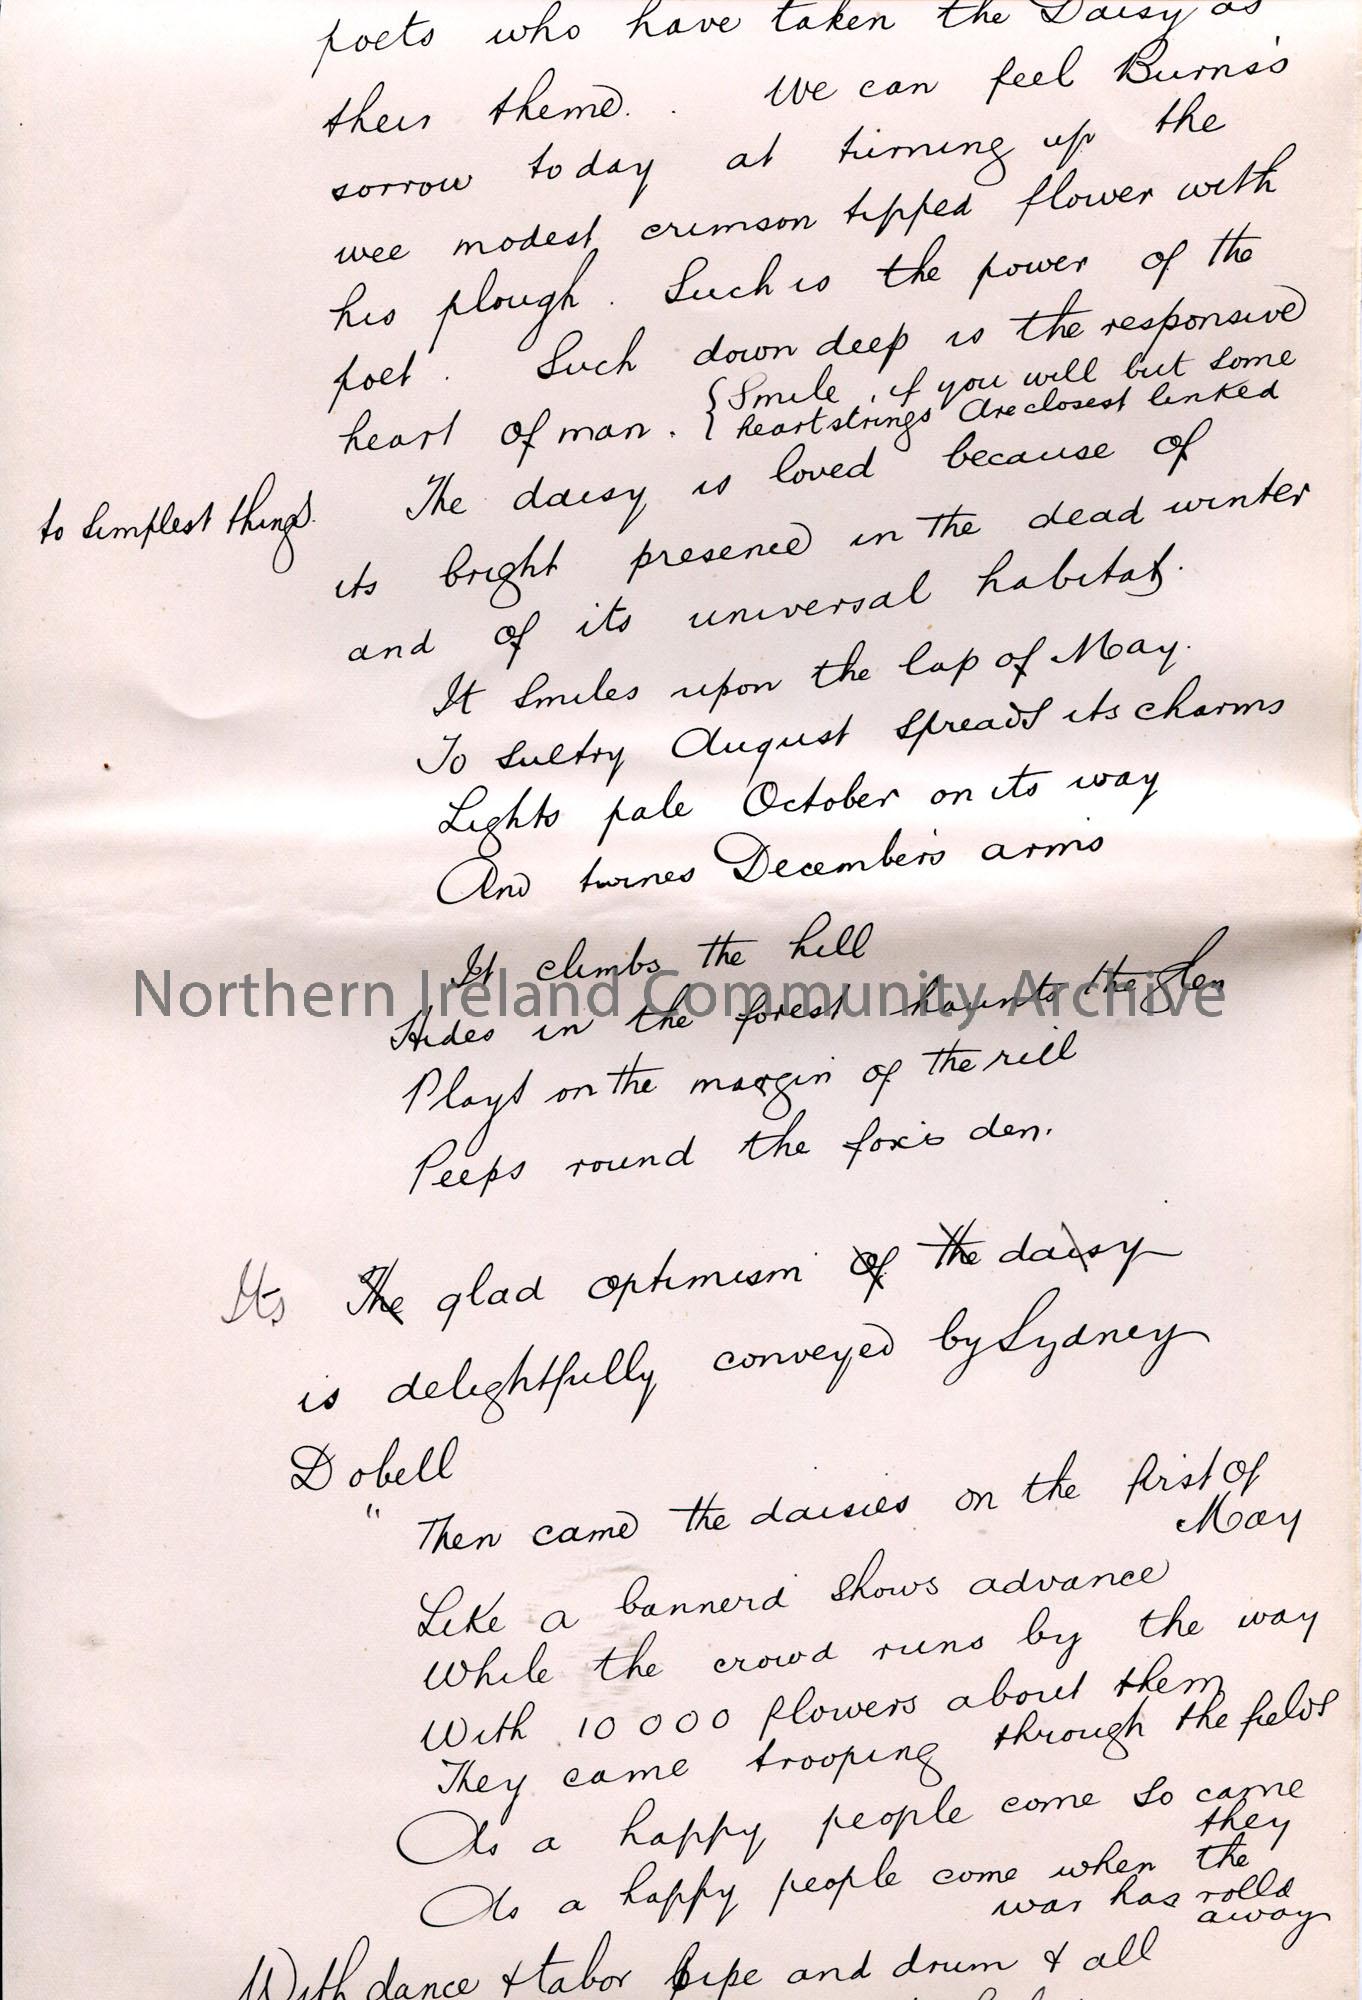 poets who have taken the Daisy as
their theme. We can feel Burns's
sorrow today at turning up the
wee modest crimson tipped flower with
his plough. Such is the power of the
poet. Such down deep is the responsive
heart of man. {Smile, if you will but some
heartstrings are closest linked
to simplest things.
The daisy is loved because of
its bright presence in the dead winter
and of its universal habitat.
It smiles upon the lap of May.
To sultry August spreads its charms
Lights pale October on its way
And twines December's arms
It climbs the hill
Northern Ireland Community Archive
Hides in the forest haunts the glen
Plays on the margin of the rill
Peeps round the fox's den.
Its The glad optimism of the daisy
is delightfully conveyed by Sydney
Dobell
" Then came the daisies on the first of
May
Like a banner'd shows advance
While the crowd runs by the way
With 10000 flowers about them
They came trooping through the fields
As a happy people come so came
they
As a happy people come when the
war has rolld
away
With dance & tabor pipe and drum & all